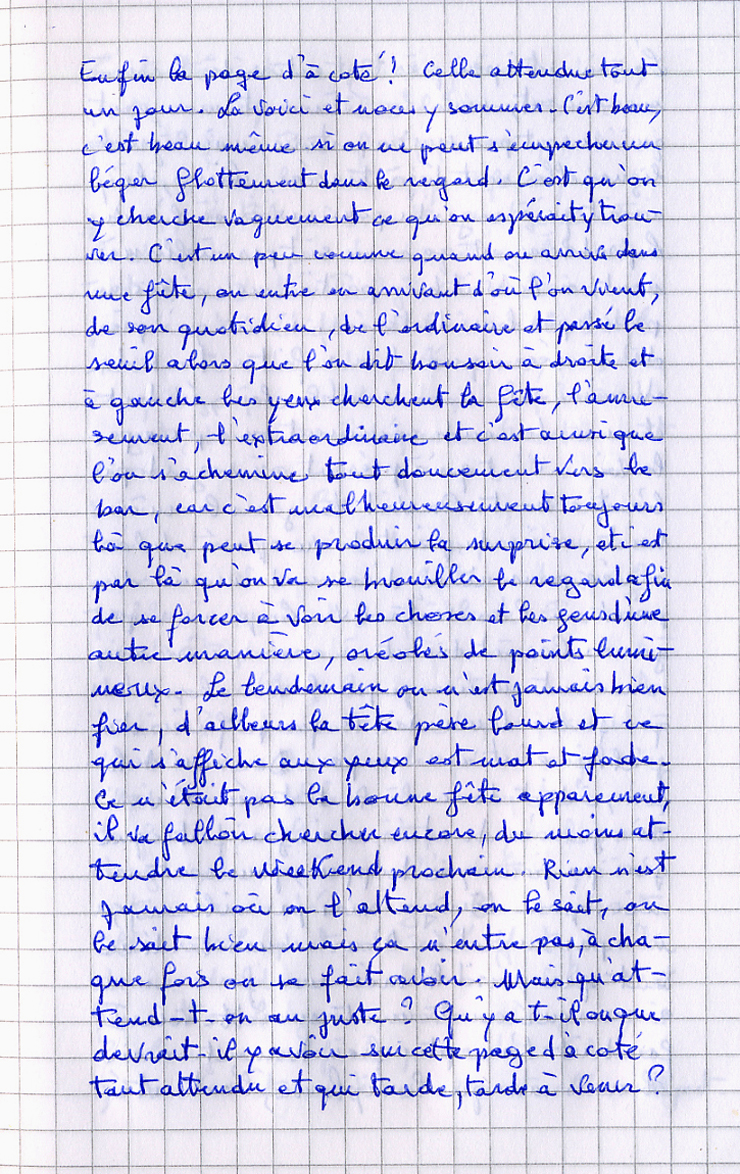 Enfin la page d'à coté ! Celle attendue tout
un jour. La voici et nous y sommes. C'est beau,
c'est beau même si on ne peut s'empecher un
léger flottement dans le regard. C'est qu'on
y cherche vaguement ce qu'on espérait y trou-
ver. C'est un peu comme quand on arrive dans
une fête, on entre en arrivant d'où l'on vient,
de son quotidien, de l'ordinaire et passé le
seuil alors que l'on dit bonsoir à droite et
à gauche les yeux cherchent la fête, l'amu-
sement, l'extraordinaire et c'est ainsi que
l'on s'achemine tout doucement vers le
bar, car c'est malheureusement toujours
là que peut se produire la surprise, et c'est
par là qu'on va se brouiller le regard afin
de se forcer à voir les choses et les gens d'une
autre manière, oréolés de points lumi-
neux. Le lendemain on n'est jamais bien
fier, d'ailleurs la tête pèse lourd et ce
qui s'affiche aux yeux est mat et fade.
Ce n'était pas la bonne fête apparement,
il va falloir chercher encore, du moins at-
tendre le week end prochain. Rien n'est
jamais où on l'attend, on le sait, on
le sait bien mais ça n'entre pas, à cha-
que fois on se fait avoir. Mais qu'at-
tend-t-on au juste ? Qu'y a t-il ou que
devrait-il y avoir sur cette page d'à coté
tant attendu et qui tarde, tarde à venir ?